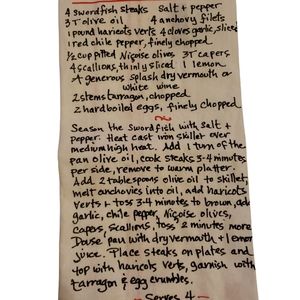 4 swordfish steaks Salt + pepper
3T olive oil 4 anchovy filets
1 pound haricots verts 4 cloves garlic, sliced
1 red chile pepper, finely chopped
1/2 cup pitted Niçoise olives 3T capers
4 scallions, thinly sliced 1 lemon
A generous splash dry vermouth or
white wine
2 stems tarragon, chopped
2 hard boiled eggs, finely chopped
Season the swordfish with salt +
pepper. Heat cast iron skillet over
medium high heat. Add 1 turn of the
pan olive oil, cook steaks 3-4 minutes
per side, remove to warm platter.
Add 2 tablespoons olive oil to skillet,
melt anchovies into oil, add haricots
verts + toss 3-4 minutes to brown, add
garlic, chile pepper, Niçoise olives,
capers, scallions, toss 2 minutes more
Douse pan with dry vermouth + lemon
juice. Place steaks on plates and
top with haricots verts, garnish with
tarragon & egg crumbles.
Serves 4